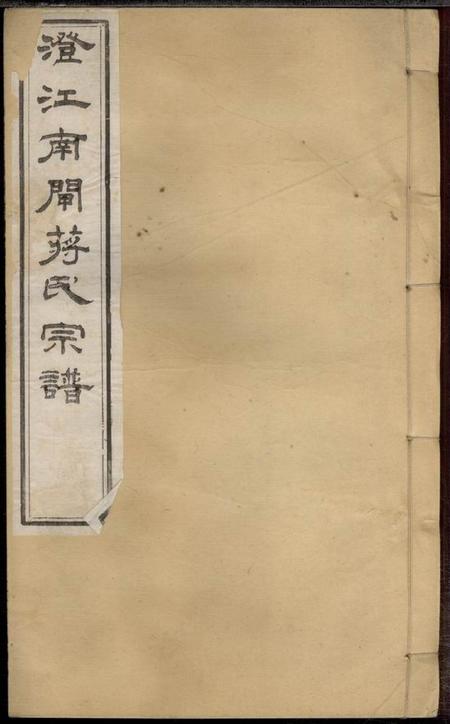 澄江南閘蔣氏宗譜